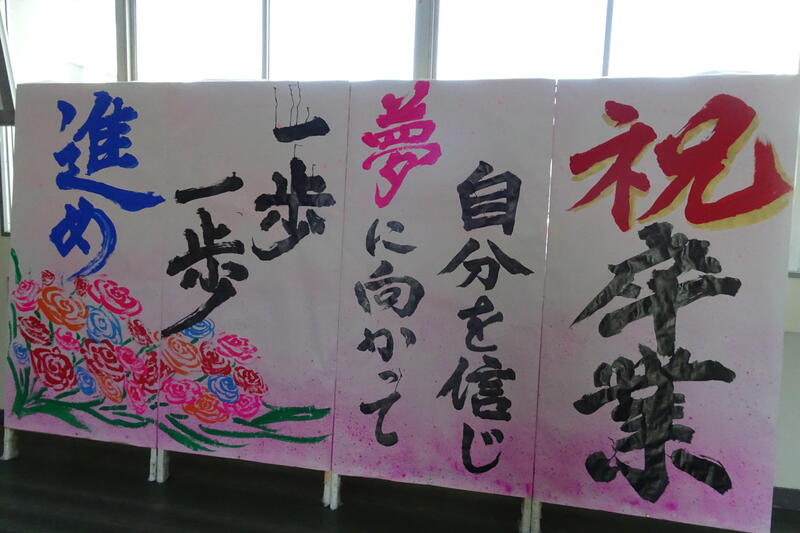 祝卒業
自分を信じ
夢に向かって
一歩
一歩
進め